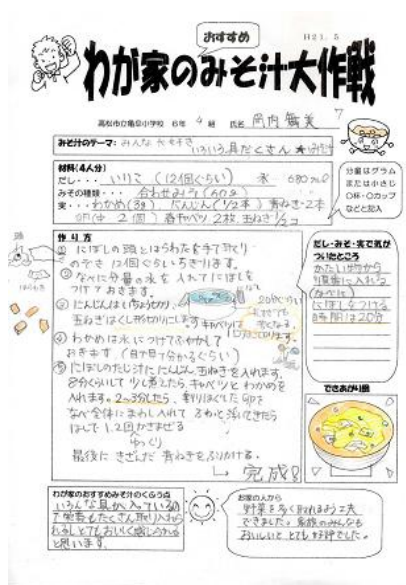 おすすめ
H21.5
わが家のみそ汁大作戦
高松市立亀阜小学校 6年 4組 氏名
みそ汁のテーマ: みんな大すき
いろいろ具だくさん★みそ汁
材料(4人分)
だし・・・いりこ(12個ぐらい) 水 680ml
みその種類・・・合わせみそ(60g)
実・・・わかめ(3g) にんじん(1/2本) 青ねぎ・2本
卵(中2個) 春キャベツ2枚 玉ねぎ1/2コ
分量はグラム
または小さじ
○杯・○カップ
などと記入
作り方
頭
はらわた
① にぼしの頭とはらわたを手で取り
のぞき 12個ぐらいちぎります。
② なべに分量の水を入れてにぼしを
つけておきます。
20分ぐらい
③ にんじんはいちょう切り、
玉ねぎはくし形切りにします。
④ わかめは水につけてふやかして
おきます。
⑤ にぼしのだし汁ににんじん、玉ねぎを入れます。
8分ぐらいして少し煮えたら、キャベツとわかめを
入れます。2〜3分したら、割りほぐした卵を
なべ全体にまわし入れて ふわっと浮いてきたら
はしで1、2回かきまぜる
ゆっくり
最後に きざんだ 青ねぎをふりかける。
完成!
だし・みそ・実で気が
ついたところ
かたい物から
順番に入れる
にぼしをつける
時間は20分
できあがり図
わが家のおすすめみそ汁のくふう点
いろんな具が入っているの
で栄養もたくさん取り入れら
れるしとてもおいしく感じられる
と思います。
お家の人から
野菜を多く取れるよう工夫
できました。家族のみんなも
おいしいと とても好評でした。